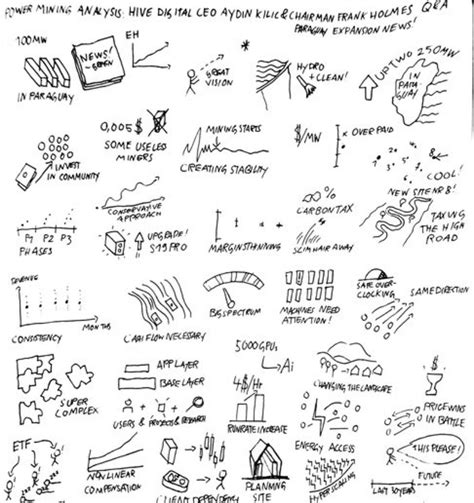 POWER MINING ANALYSIS: HIVE DIGITAL CEO AYDIN KILIC & CHAIRMAN FRANK HOLMES Q&A
PARAGUAY EXPANSION NEWS!
100MW
IN PARAGUAY
NEWS!
EH
GREAT
VISION
HYDRO
+CLEAN!
UP TWO 250MW
IN
PARA
GUAY
INVEST
IN COMMUNITY
0,005$
SOME USELESS
MINERS
MINING STARTS
CREATING STABILITY
$/MW
OVERPAID
COOL!
NEW SITE NR 8!
P1 P2 P3
PHASES
CONSERVATIVE
APPROACH
UPGRADE!
S19PRO
MARGINSTHINNING
CARBONTAX
SLIM HAIR AWAY
TAKING
THE HIGH
ROAD
REVENUE
MONTHS
CONSISTENCY
CASHFLOW NECESSARY
BIG SPECTRUM
MACHINES NEED
ATTENTION!
SAFE OVER-
CLOCKING
SAME DIRECTION
SUPER
COMPLEX
APP LAYER
BASE LAYER
USERS & PROJECTS & RESEARCH
5000 GPUs
Ai
4$/Hr
RUNRATE INCREASE
CHANGING THE LANDSCAPE
ENERGY ACCESS
$
PRICE WINS
IN BATTLE
THIS PLEASE!
ETF
NON LINEAR
COMPENSATION
CLEAN DEPENDENCY
PLANNING
SITE
HYPERSCALING
LAST 10 YEARS
FUTURE